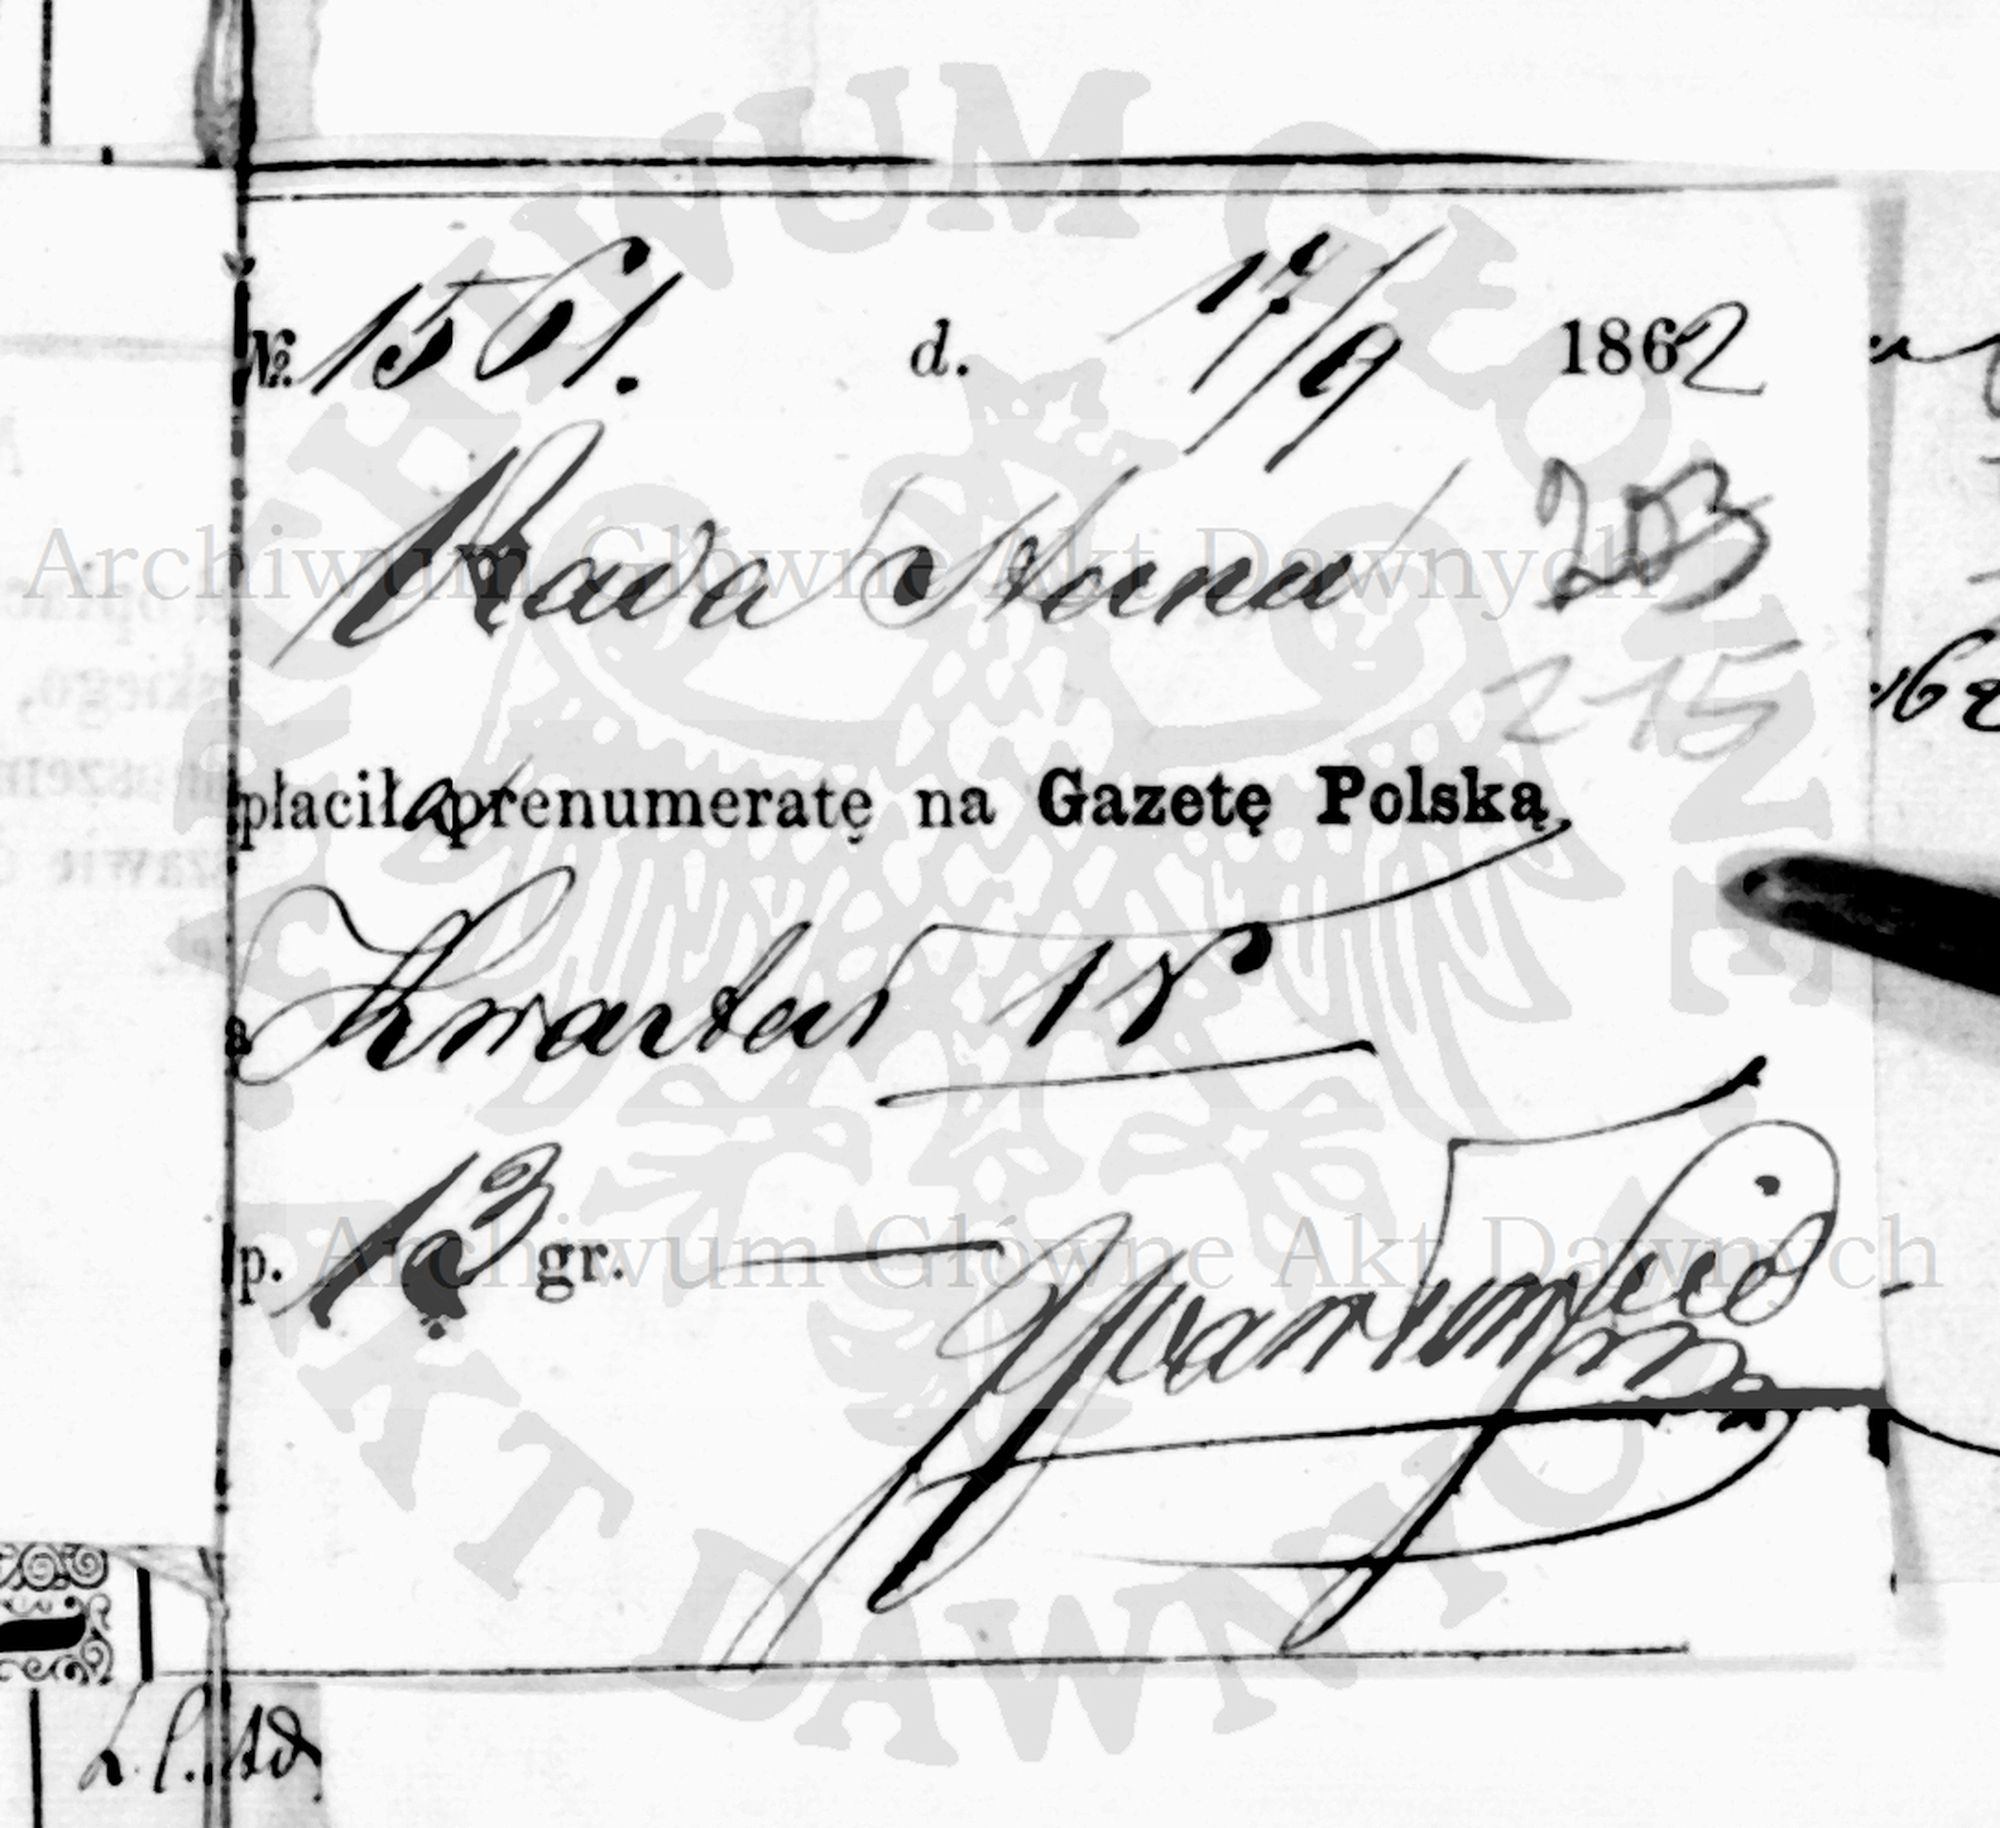 № 1561. d. 17/9 1862
Rada Stanu 203
215
płaciła prenumeratę na Gazetę Polską
a Kwartał IV
p. 13 gr. —
L. P. Ad
Archiwum Główne Akt Dawnych
Archiwum Główne Akt Dawnych
ARCHIWUM GŁÓWNE AKT DAWNYCH